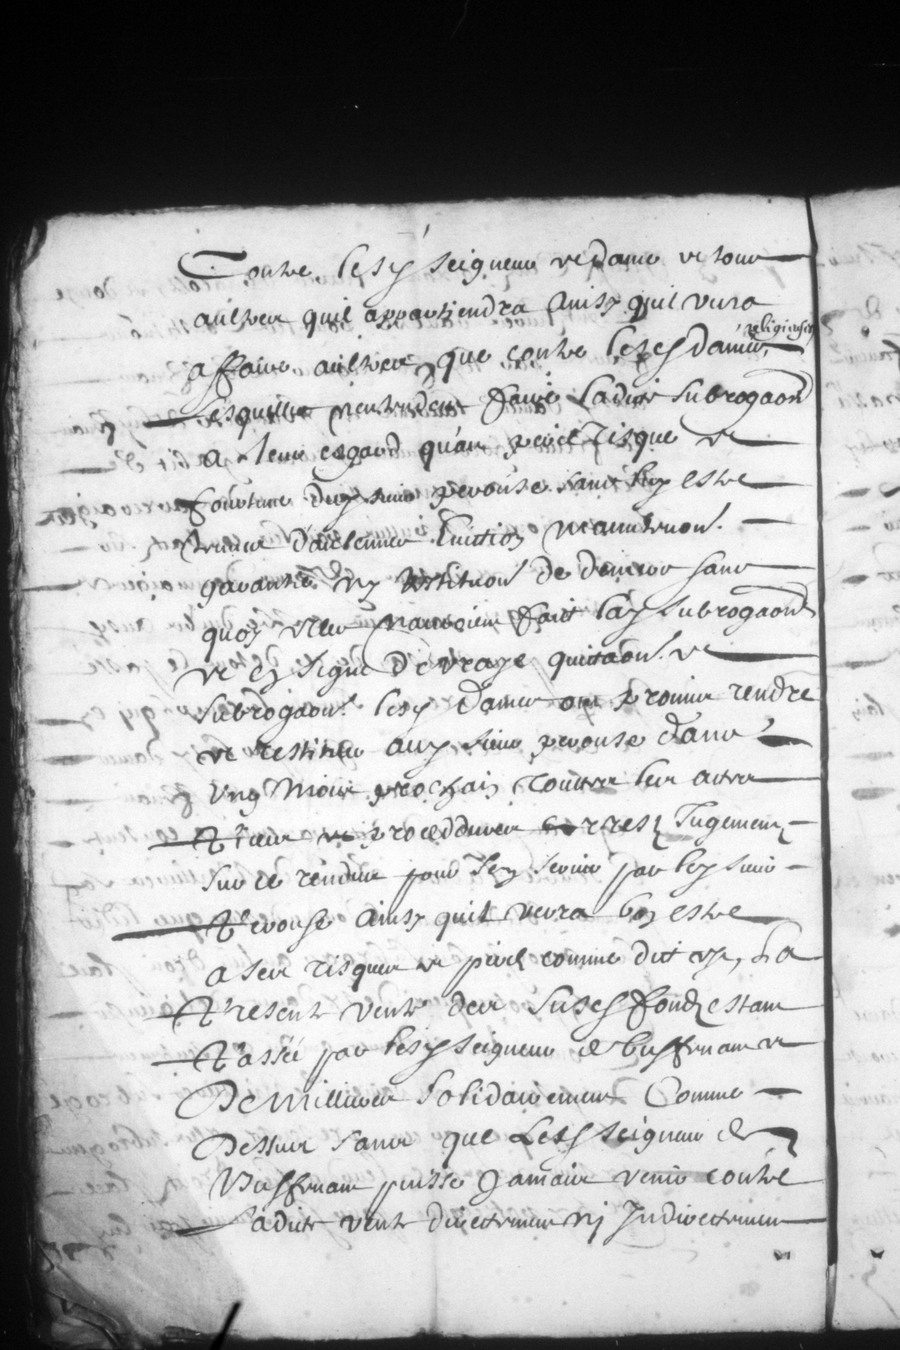 Contre lesd seigneur et dame et tous
aultres quil appartiendra ainsy quil verra
affaire aultres que contre lesd dames religieuses
lesquelles nentendent faire ladite subrogaon
a leur esgard quau peril risque et
fortune dud sieur perouse sans luy estre
tenues daulcunne euiction mainteuon
garantie ny restitution de deniers sans
quoy elles nauroient fait lad subrogaon
et en signe de vraye quittaon et
subrogaon lesd dames ont promis rendre
et restituer aud sieur perouse dans
ung mois prochain toutes les actes
tiltres et proceddures arrest Jugement
sur ce rendus pour sen seruir par led sieur
Perouse ainsy quil verra bon estre
a ses risques et peril comme dit est, La
Presente vente des susd fondz estant
Passée par lesd seigneur de bussenant et
De Millieres solidairement Comme
Dessus sans que Lesd seigneur de
Bussenant puisse Jamais venir contre
ladite vente directement ny Indirectement